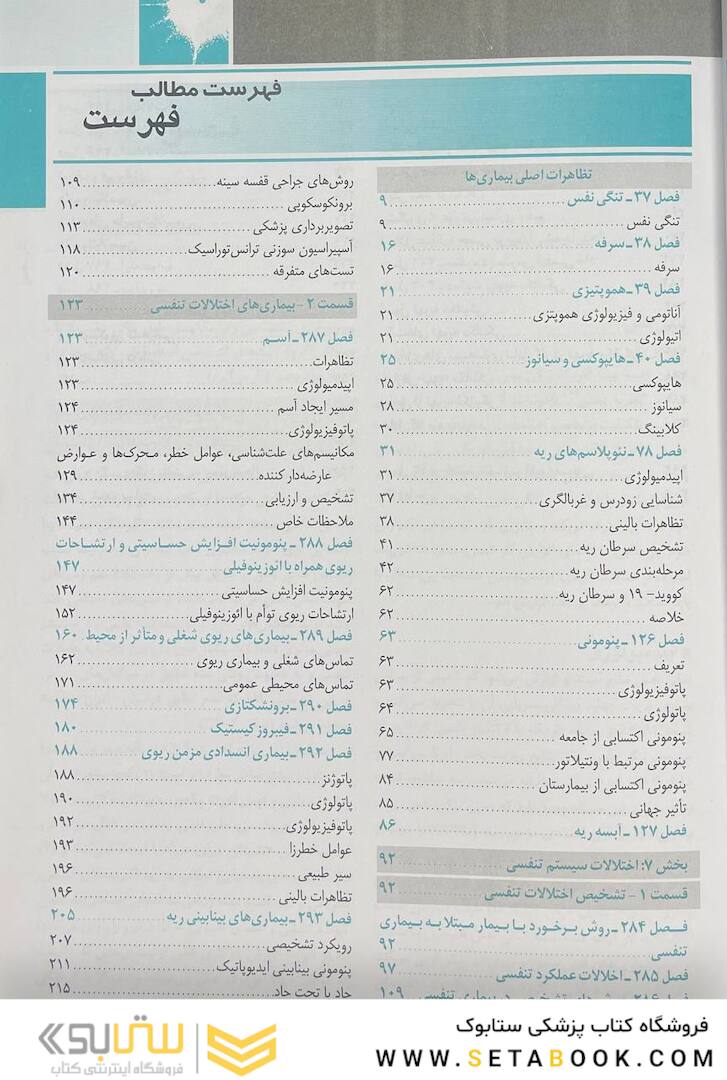 فهرست مطالب
فهرست
تظاهرات اصلی بیماری‌ها
فصل ۳۷ ـ تنگی نفس ۹
تنگی نفس ۹
فصل ۳۸ ـ سرفه ۱۶
سرفه ۱۶
فصل ۳۹ ـ هموپتیزی ۲۱
آناتومی و فیزیولوژی هموپتزی ۲۱
اتیولوژی ۲۱
فصل ۴۰ ـ هایپوکسی و سیانوز ۲۵
هایپوکسی ۲۵
سیانوز ۲۸
کلابینگ ۳۰
فصل ۷۸ ـ نئوپلاسم‌های ریه ۳۱
اپیدمیولوژی ۳۱
شناسایی زودرس و غربالگری ۳۷
تظاهرات بالینی ۳۸
تشخیص سرطان ریه ۴۱
مرحله‌بندی سرطان ریه ۴۲
کووید- ۱۹ و سرطان ریه ۶۲
خلاصه ۶۲
فصل ۱۲۶ ـ پنومونی ۶۳
تعریف ۶۳
پاتوفیزیولوژی ۶۳
پاتولوژی ۶۴
پنومونی اکتسابی از جامعه ۶۵
پنومونی مرتبط با ونتیلاتور ۷۷
پنومونی اکتسابی از بیمارستان ۸۴
تأثیر جهانی ۸۵
فصل ۱۲۷ ـ آبسه ریه ۸۶
بخش ۷: اختلالات سیستم تنفسی ۹۲
قسمت ۱ - تشخیص اختلالات تنفسی ۹۲
فصل ۲۸۴ ـ روش برخورد با بیمار مبتلا به بیماری
تنفسی ۹۲
فصل ۲۸۵ ـ اخلالات عملکرد تنفسی ۹۷
روش‌های جراحی قفسه سینه ۱۰۹
برونکوسکوپی ۱۱۰
تصویربرداری پزشکی ۱۱۳
آسپیراسیون سوزنی ترانس‌توراسیک ۱۱۸
تست‌های متفرقه ۱۲۰
قسمت ۲ - بیماری‌های اختلالات تنفسی ۱۲۳
فصل ۲۸۷ ـ آسم ۱۲۳
تظاهرات ۱۲۳
اپیدمیولوژی ۱۲۳
مسیر ایجاد آسم ۱۲۴
پاتوفیزیولوژی ۱۲۴
مکانیسم‌های علت‌شناسی، عوامل خطر، محرک‌ها و عوارض
عارضه‌دار کننده ۱۲۹
تشخیص و ارزیابی ۱۳۴
ملاحظات خاص ۱۴۴
فصل ۲۸۸ ـ پنومونیت افزایش حساسیتی و ارتشاحات
ریوی همراه با ائوزینوفیلی ۱۴۷
پنومونیت افزایش حساسیتی ۱۴۷
ارتشاحات ریوی توأم با ائوزینوفیلی ۱۵۲
فصل ۲۸۹ ـ بیماری‌های ریوی شغلی و متأثر از محیط ۱۶۰
تماس‌های شغلی و بیماری ریوی ۱۶۲
تماس‌های محیطی عمومی ۱۷۱
فصل ۲۹۰ ـ برونشکتازی ۱۷۴
فصل ۲۹۱ ـ فیبروز کیستیک ۱۸۰
فصل ۲۹۲ ـ بیماری انسدادی مزمن ریوی ۱۸۸
پاتوژنز ۱۸۸
پاتولوژی ۱۹۰
پاتوفیزیولوژی ۱۹۲
عوامل خطرزا ۱۹۳
سیر طبیعی ۱۹۶
تظاهرات بالینی ۱۹۶
فصل ۲۹۳ ـ بیماری‌های بینابینی ریه ۲۰۵
رویکرد تشخیصی ۲۰۷
پنومونی بینابینی ایدیوپاتیک ۲۱۱
حاد یا تحت حاد ۲۱۵
ستابوک
فروشگاه اینترنتی کتاب
فروشگاه کتاب پزشکی ستابوک
WWW.SETABOOK.COM